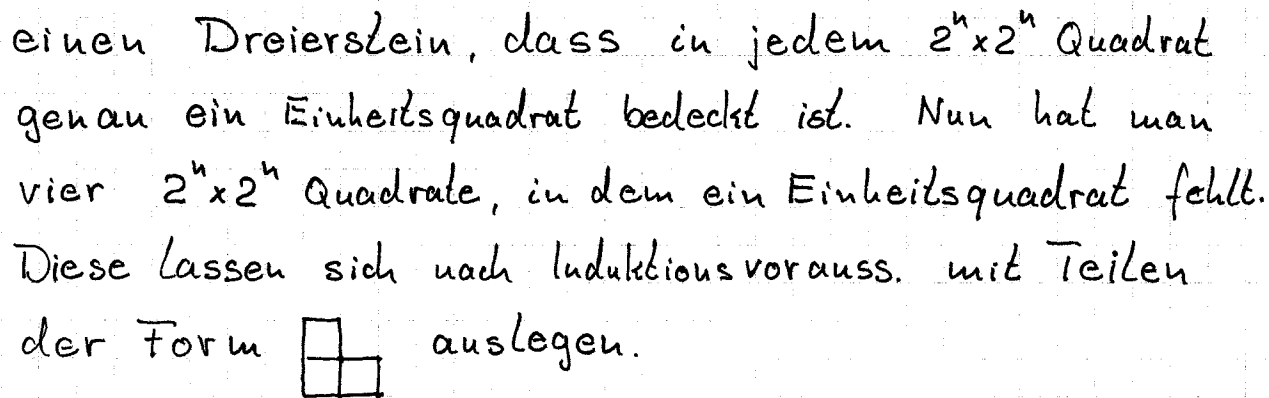 einen Dreierstein, dass in jedem 2ⁿx2ⁿ Quadrat
genau ein Einheitsquadrat bedeckt ist. Nun hat man
vier 2ⁿx2ⁿ Quadrate, in dem ein Einheitsquadrat fehlt.
Diese lassen sich nach Induktionsvorauss. mit Teilen
der Form auslegen.